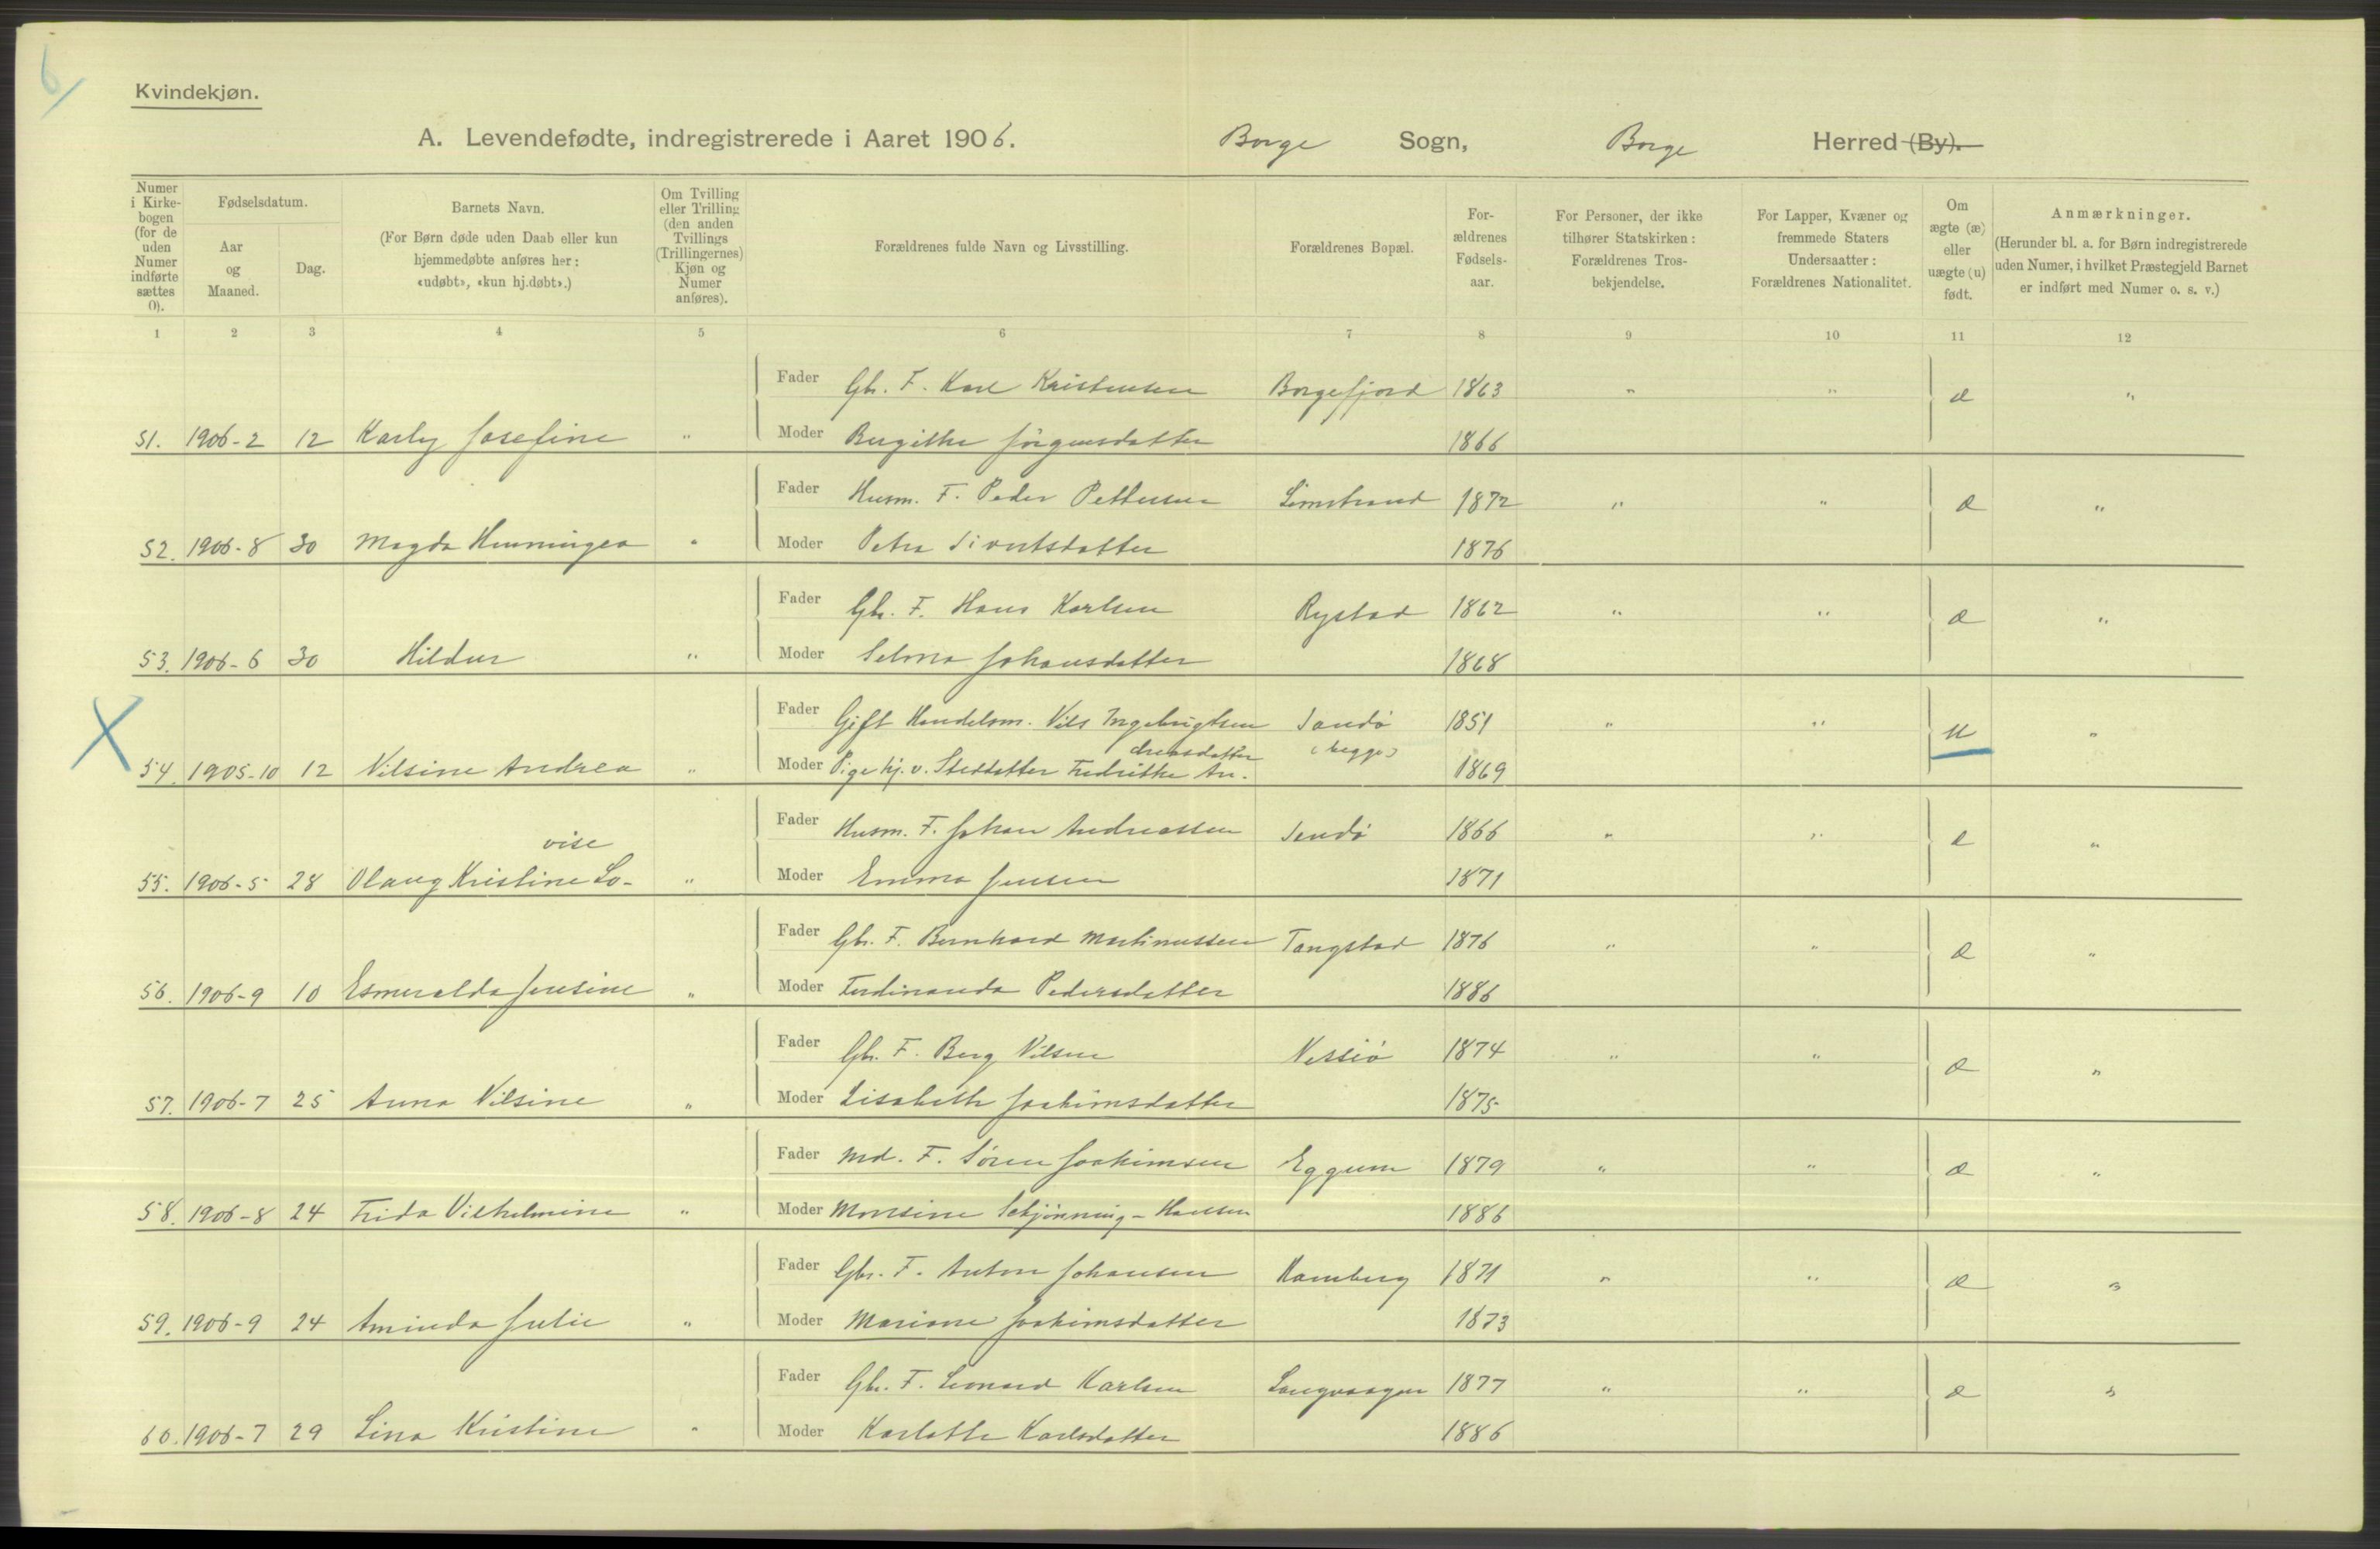 6
Kvindekjøn.
A. Levendefødte, indregistrerede i Aaret 1906. Borge Sogn, Borge Herred (By).
Numer i Kirkebogen (for de uden Numer indførte sættes 0).
Fødselsdatum.
Aar og Maaned.
Dag.
Barnets Navn.
(For Børn døde uden Daab eller kun hjemmedøbte anføres her: «udøbt», «kun hj.døbt».)
Om Tvilling eller Trilling (den anden Tvillings (Trillingernes) Kjøn og Numer anføres).
Forældrenes fulde Navn og Livsstilling.
Forældrenes Bopæl.
Forældrenes Fødselsaar.
For Personer, der ikke tilhører Statskirken: Forældrenes Trosbekjendelse.
For Lapper, Kvæner og fremmede Staters Undersaatter: Forældrenes Nationalitet.
Om ægte (æ) eller uægte (u) født.
Anmærkninger.
(Herunder bl. a. for Børn indregistrerede uden Numer, i hvilket Præstegjeld Barnet er indført med Numer o. s. v.)
1 2 3 4 5 6 7 8 9 10 11 12
Fader Gbr. F. Karl Kristensen Borgefjord 1863 " " æ "
51. 1906-2 12 Karly Josefine " Moder Bergithe Jörgensdatter 1866
Fader Husm. F. Peder Pettersen Limstrand 1872 " " æ "
52. 1906-8 30 Magda Henningea " Moder Petra Sivertsdatter 1876
Fader Gbr. F. Hans Karlsen Rystad 1862 " " æ "
53. 1906-6 30 Hildur " Moder Selma Johansdatter 1868
Fader Gift Handelsm. Nils Ingebrigtsen Sandö 1851 " " u "
dreasdatter (begge)
X 54. 1905-10 12 Nilsine Andrea " Moder Pige hj. v. Steddatter Fredrikke An- 1869
Fader Husm. F. Johan Andreassen Sandö 1866 " " æ "
vise
55. 1906-5 28 Olaug Kristine Lo- " Moder Emma Jensen 1871
Fader Gbr. F. Bernhard Martinussen Tangstad 1876 " " æ "
56. 1906-9 10 Esmeralda Jensine " Moder Ferdinanda Pedersdatter 1886
Fader Gbr. F. Berg Nilsen Nessiö 1874 " " æ "
57. 1906-7 25 Anna Nilsine " Moder Lisabeth Joakimsdatter 1875
Fader Md. F. Sören Joakimsen Eggum 1879 " " æ "
58. 1906-8 24 Frida Vilhelmine " Moder Monsine Schjönning-Hansen 1886
Fader Gbr. F. Anton Johansen Hamberg 1871 " " æ "
59. 1906-9 24 Aminda Julie " Moder Mariane Joakimsdatter 1873
Fader Gbr. F. Leonard Karlsen Langvaagen 1877 " " æ "
60. 1906-7 29 Lina Kristine " Moder Karlotte Karlsdatter 1886